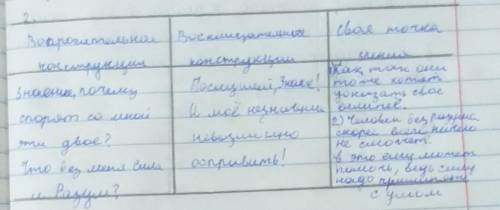 2.
Вопросительные конструкции
Знаешь, почему
спорят со мной
эти двое?
Что без меня Сила
и Разум?
Восклицательные конструкции
Послушай, Знание!
И моё
невозможно
оспорить!
Своя точка
зрения
так они
тоже хотят
доказать свое
2) Человек без разума
скорее всего ничего
не сможет.
в этом ему может
помочь, ведь силу
надо
с умом